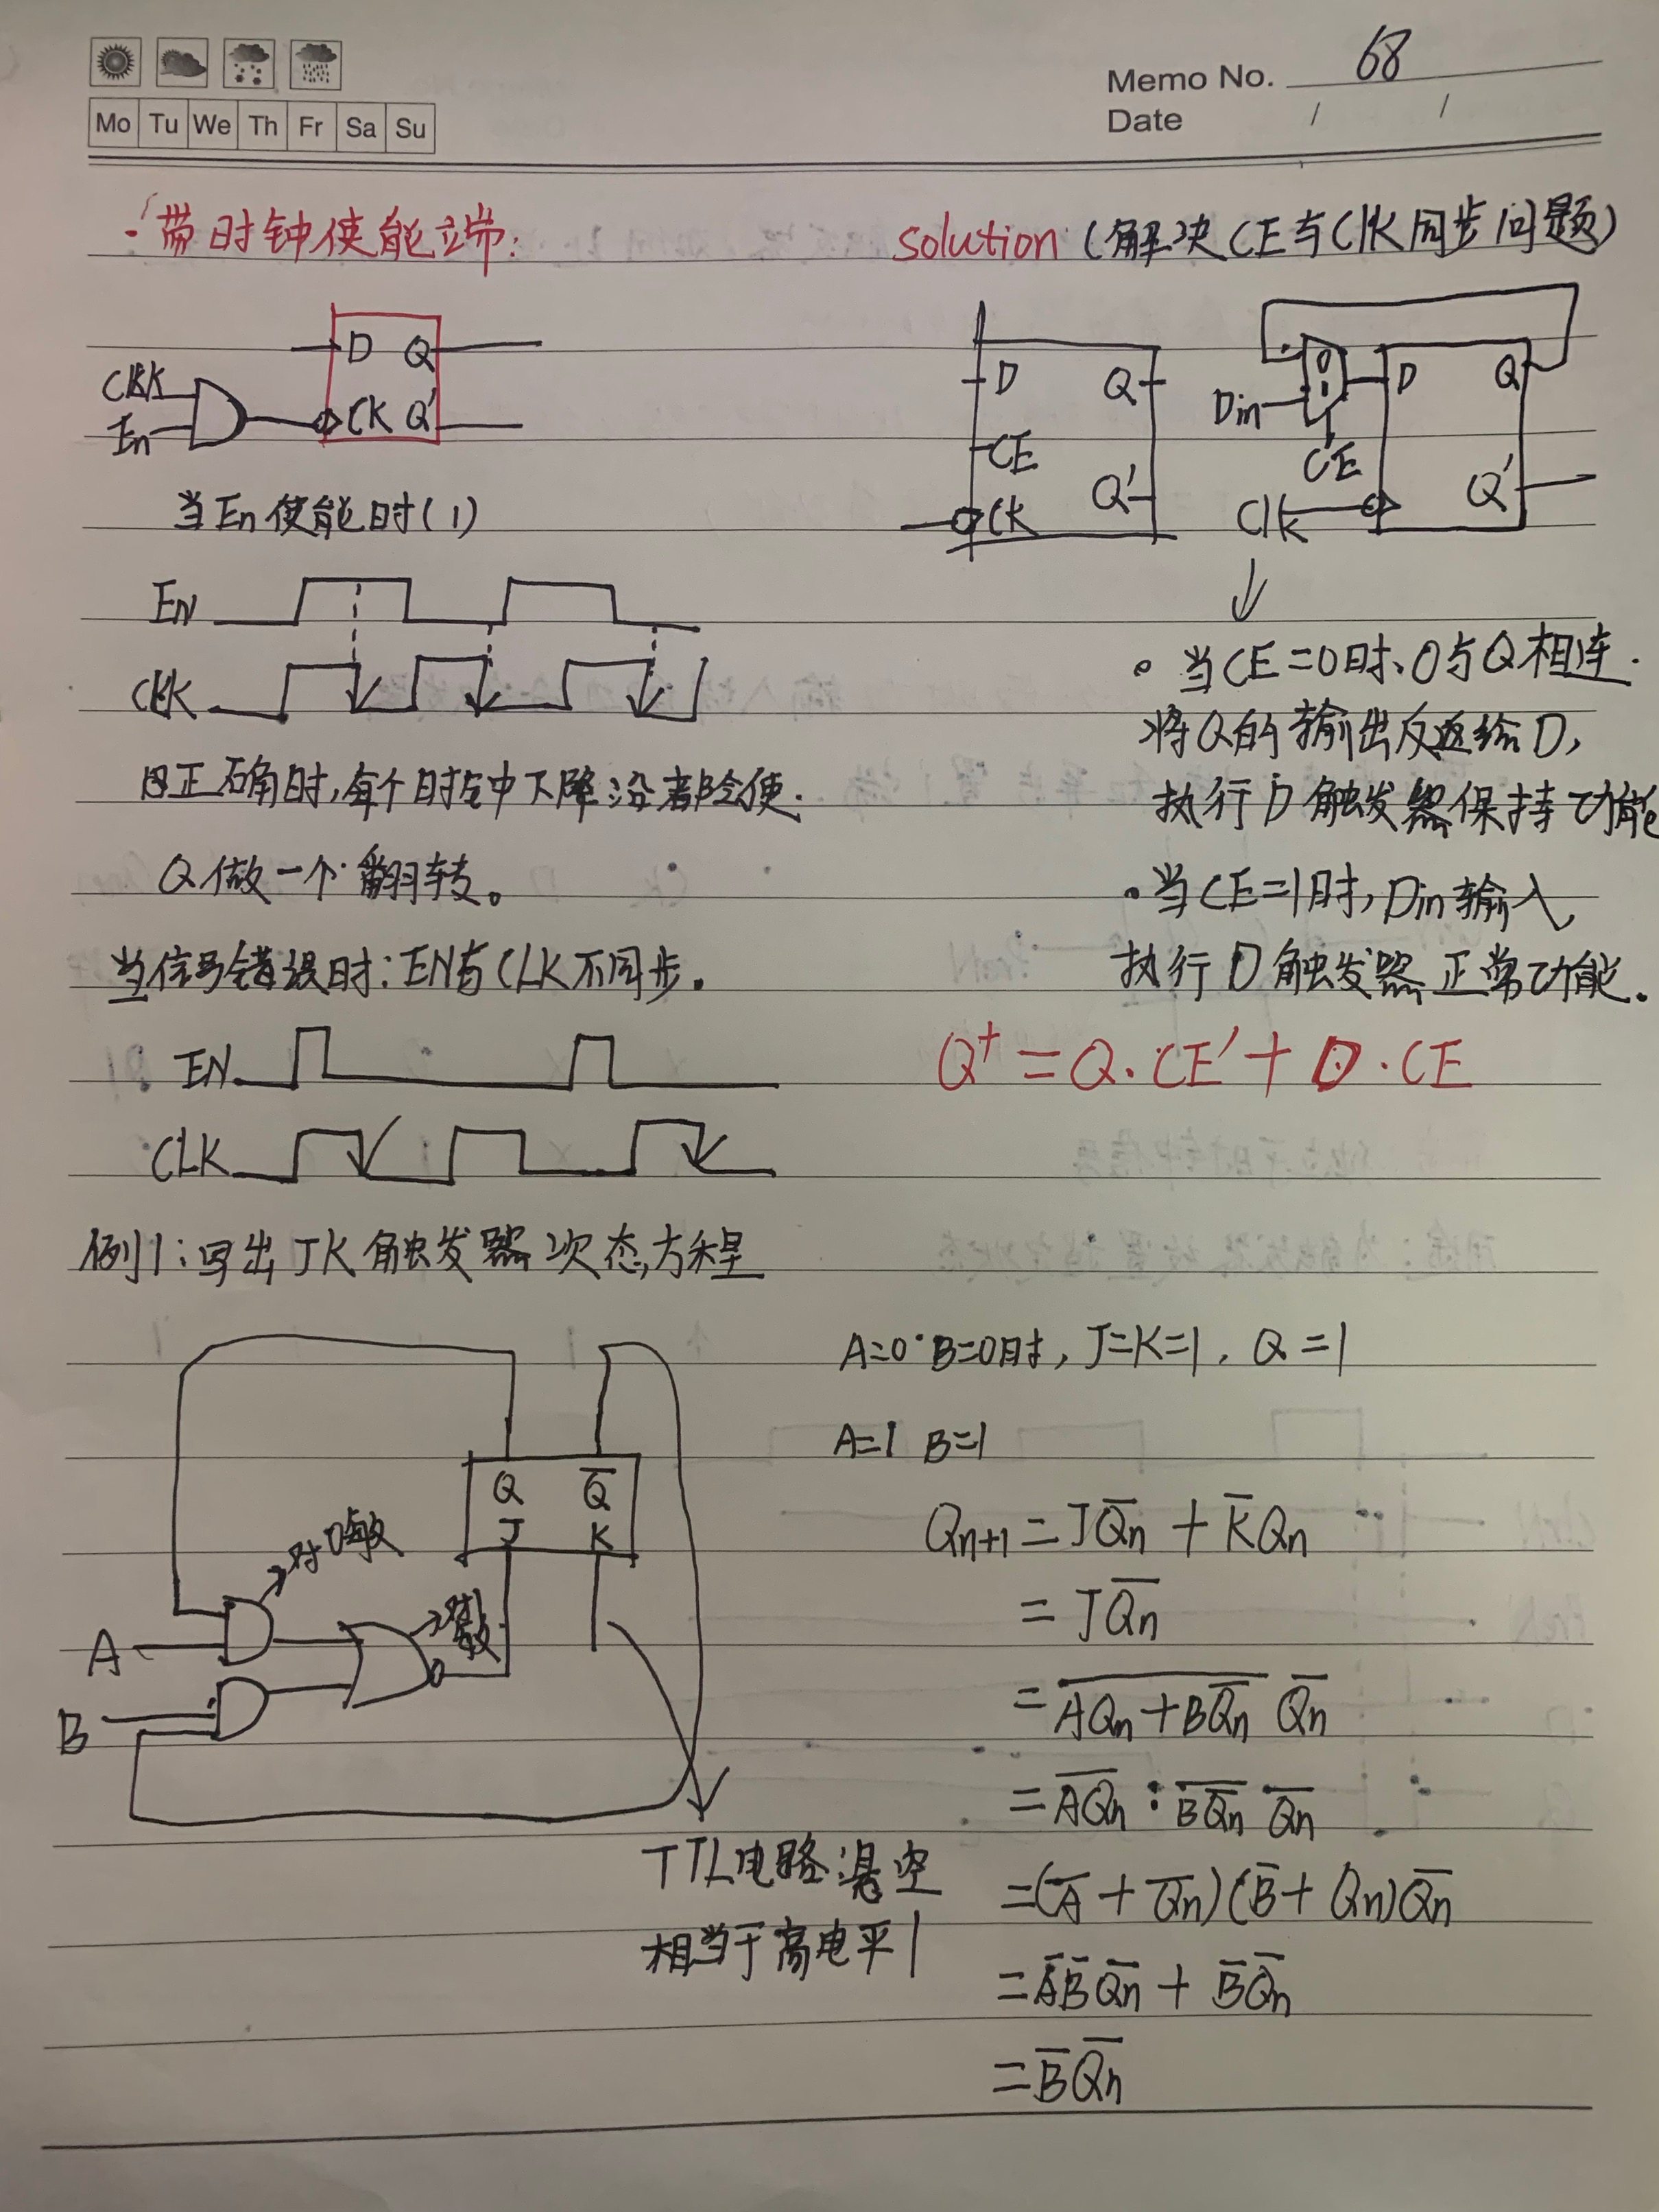 Memo No. 68
Mo Tu We Th Fr Sa Su
Date / /
·带时钟使能端:
D Q
CLK
En
CK Q'
当En使能时(1)
EN
CLK
正确时,每个时钟下降沿都会使
Q做一个翻转。
当信号错误时:EN与CLK不同步.
EN
CLK
solution (解决CE与Clk同步问题)
D Q
CE
Q'
CK
0
1
D Q
Din
CE
Q'
Clk
当CE=0时、0与Q相连.
将Q的输出反返给D,
执行D触发器保持功能
·当CE=1时,Din输入,
执行D触发器正常功能.
Q⁺=Q·CE'+D·CE
例1:写出JK触发器次态方程
Q Q̅
J K
对0敏
A
B
TTL电路:悬空
相当于高电平1
A=0 B=0时,J=K=1,Q=1
A=1 B=1
Qn+1=JQ̅n̅+K̅Qn
=JQ̅n̅
=\overline{AQn+B\overline{Qn}} \overline{Qn}
=\overline{AQn}·\overline{B\overline{Qn}} \overline{Qn}
=(A̅+Q̅n̅)(B̅+Qn)Q̅n̅
=A̅B̅Q̅n̅+B̅Q̅n̅
=B̅Q̅n̅